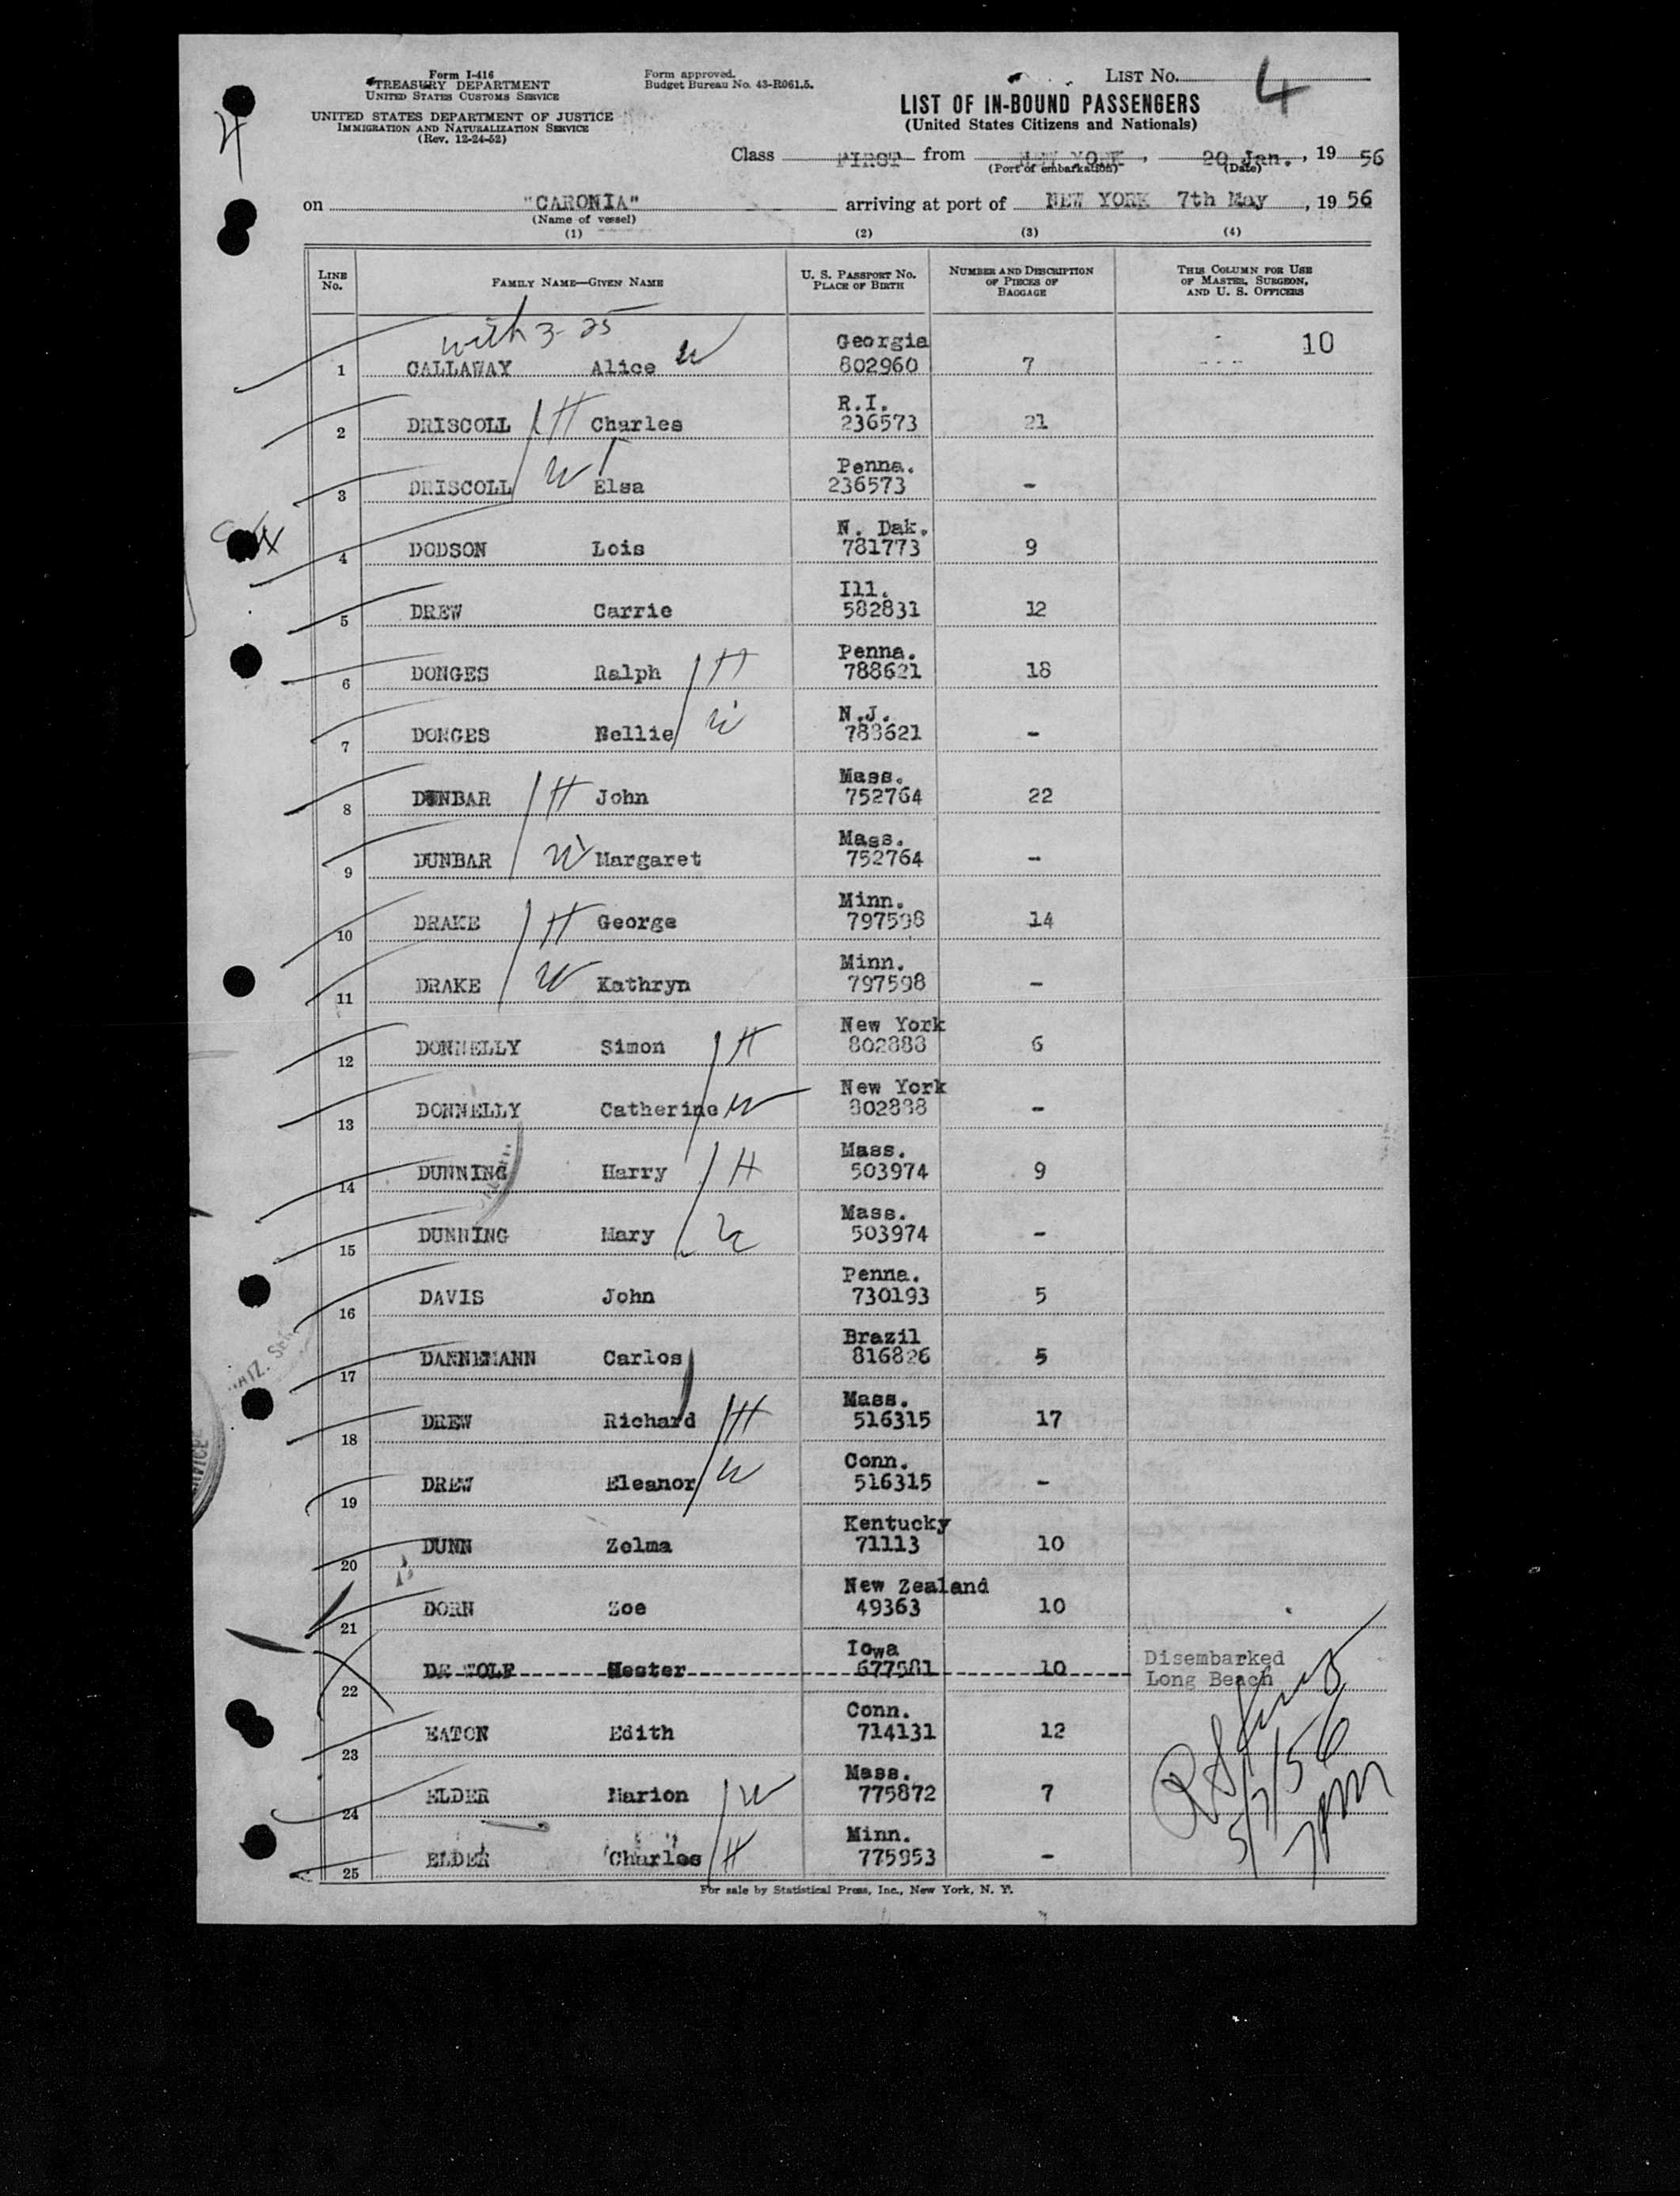 Form I-416
TREASURY DEPARTMENT
UNITED STATES CUSTOMS SERVICE
UNITED STATES DEPARTMENT OF JUSTICE
IMMIGRATION AND NATURALIZATION SERVICE
(Rev. 12-24-52)
Form approved.
Budget Bureau No. 43-R061.5.
LIST No. 4
LIST OF IN-BOUND PASSENGERS
(United States Citizens and Nationals)
4
Class FIRST from NEW YORK, 20 Jan., 19 56
(Port of embarkation) (Date)
on "CARONIA" arriving at port of NEW YORK 7th May, 19 56
(Name of vessel)
(1) (2) (3) (4)
LINE No. FAMILY NAME—GIVEN NAME U. S. PASSPORT NO. PLACE OF BIRTH NUMBER AND DESCRIPTION OF PIECES OF BAGGAGE THIS COLUMN FOR USE OF MASTER, SURGEON, AND U. S. OFFICERS
with 3-25
Georgia 10
1 CALLAWAY Alice W 802960 7
R.I.
2 DRISCOLL H Charles 236573 21
Penna.
3 DRISCOLL W Elsa 236573 -
N. Dak.
4 DODSON Lois 781773 9
Ill.
5 DREW Carrie 582831 12
Penna.
6 DONGES Ralph H 788621 18
N.J.
7 DONGES Nellie W 788621 -
Mass.
8 DUNBAR H John 752764 22
Mass.
9 DUNBAR W Margaret 752764 -
Minn.
10 DRAKE H George 797598 14
Minn.
11 DRAKE W Kathryn 797598 -
New York
12 DONNELLY Simon H 802888 6
New York
13 DONNELLY Catherine W 802888 -
Mass.
14 DUNNING Harry H 503974 9
Mass.
15 DUNNING Mary W 503974 -
Penna.
16 DAVIS John 730193 5
Brazil
17 DANNEMANN Carlos 816826 5
Mass.
18 DREW Richard H 516315 17
Conn.
19 DREW Eleanor W 516315 -
Kentucky
20 DUNN Zelma 71113 10
New Zealand
21 DORN Zoe 49363 10
Iowa
22 DE WOLF Hester 677581 10 Disembarked
Long Beach
Conn.
23 EATON Edith 714131 12
Mass.
24 ELDER Marion W 775872 7
Minn.
25 ELDER Charles H 775953 -
5/7/56
7 PM
For sale by Statistical Press, Inc., New York, N. Y.